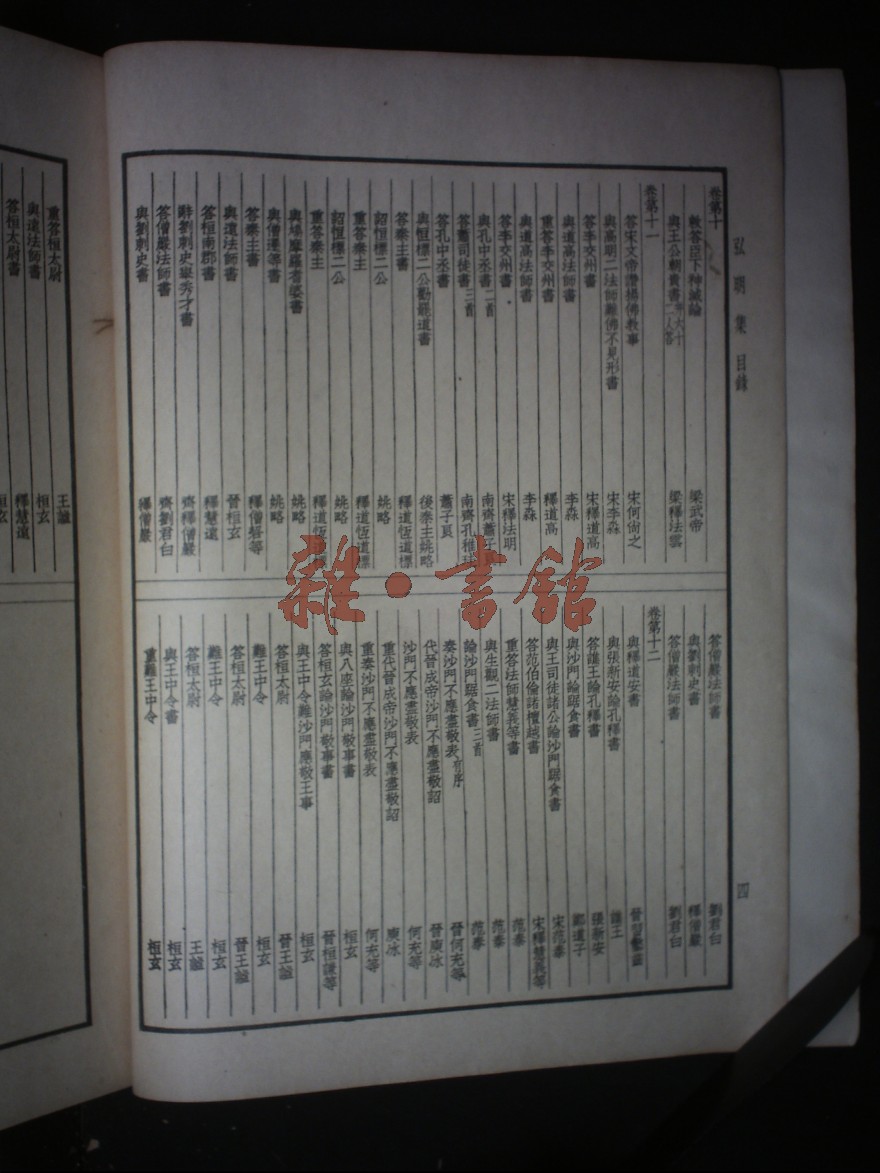 弘明集目錄
四
卷第十
敕答臣下神滅論 梁武帝
與王公朝貴書 并六十二人答 梁釋法雲
卷第十一
答宋文帝讚揚佛教事 宋何尚之
與高明二法師難佛不見形書 宋李淼
答李交州書 宋釋道高
與道高法師書 李淼
重答李交州書 釋道高
與道高法師書 李淼
答李交州書 宋釋法明
與孔中丞書二首 南齊蕭子良
答蕭司徒書三首 南齊孔稚珪
答孔中丞書 蕭子良
與恒標二公勸罷道書 後秦主姚略
答秦主書 釋道恆道標
詔恒標二公 姚略
重答秦主 釋道恆道標
詔恒標二公 姚略
重答秦主 釋道恆道標
與鳩摩羅耆婆書 姚略
與僧遷等書 姚略
答秦主書 釋僧䂮等
與遠法師書 晉桓玄
答桓南郡書 釋慧遠
辭劉刺史舉秀才書 齊釋僧巖
答僧巖法師書 齊劉君白
與劉刺史書 釋僧巖
答僧巖法師書 劉君白
與劉刺史書 釋僧巖
答僧巖法師書 劉君白
卷第十二
與釋道安書 晉習鑿齒
與張新安論孔釋書 譙王
答譙王論孔釋書 張新安
與沙門論踞食書 鄭道子
與王司徒諸公論沙門踞食書 宋范泰
答范伯倫諸檀越書 宋釋慧義等
重答法師慧義等書 范泰
與生觀二法師書 范泰
論沙門踞食書三首 范泰
奏沙門不應盡敬表有序 晉何充等
代晉成帝沙門不應盡敬詔 晉庾冰
沙門不應盡敬表 何充等
重代晉成帝沙門不應盡敬詔 庾冰
重奏沙門不應盡敬表 何充等
與八座論沙門敬事書 桓玄
答桓玄論沙門敬事書 晉桓謙等
與王中令難沙門應敬王事 桓玄
答桓太尉 晉王謐
難王中令 桓玄
答桓太尉 晉王謐
難王中令 桓玄
答桓太尉 王謐
與王中令書 桓玄
重難王中令 桓玄
重答桓太尉 王謐
與遠法師書 桓玄
答桓太尉書 釋慧遠
桓玄
雜·書館